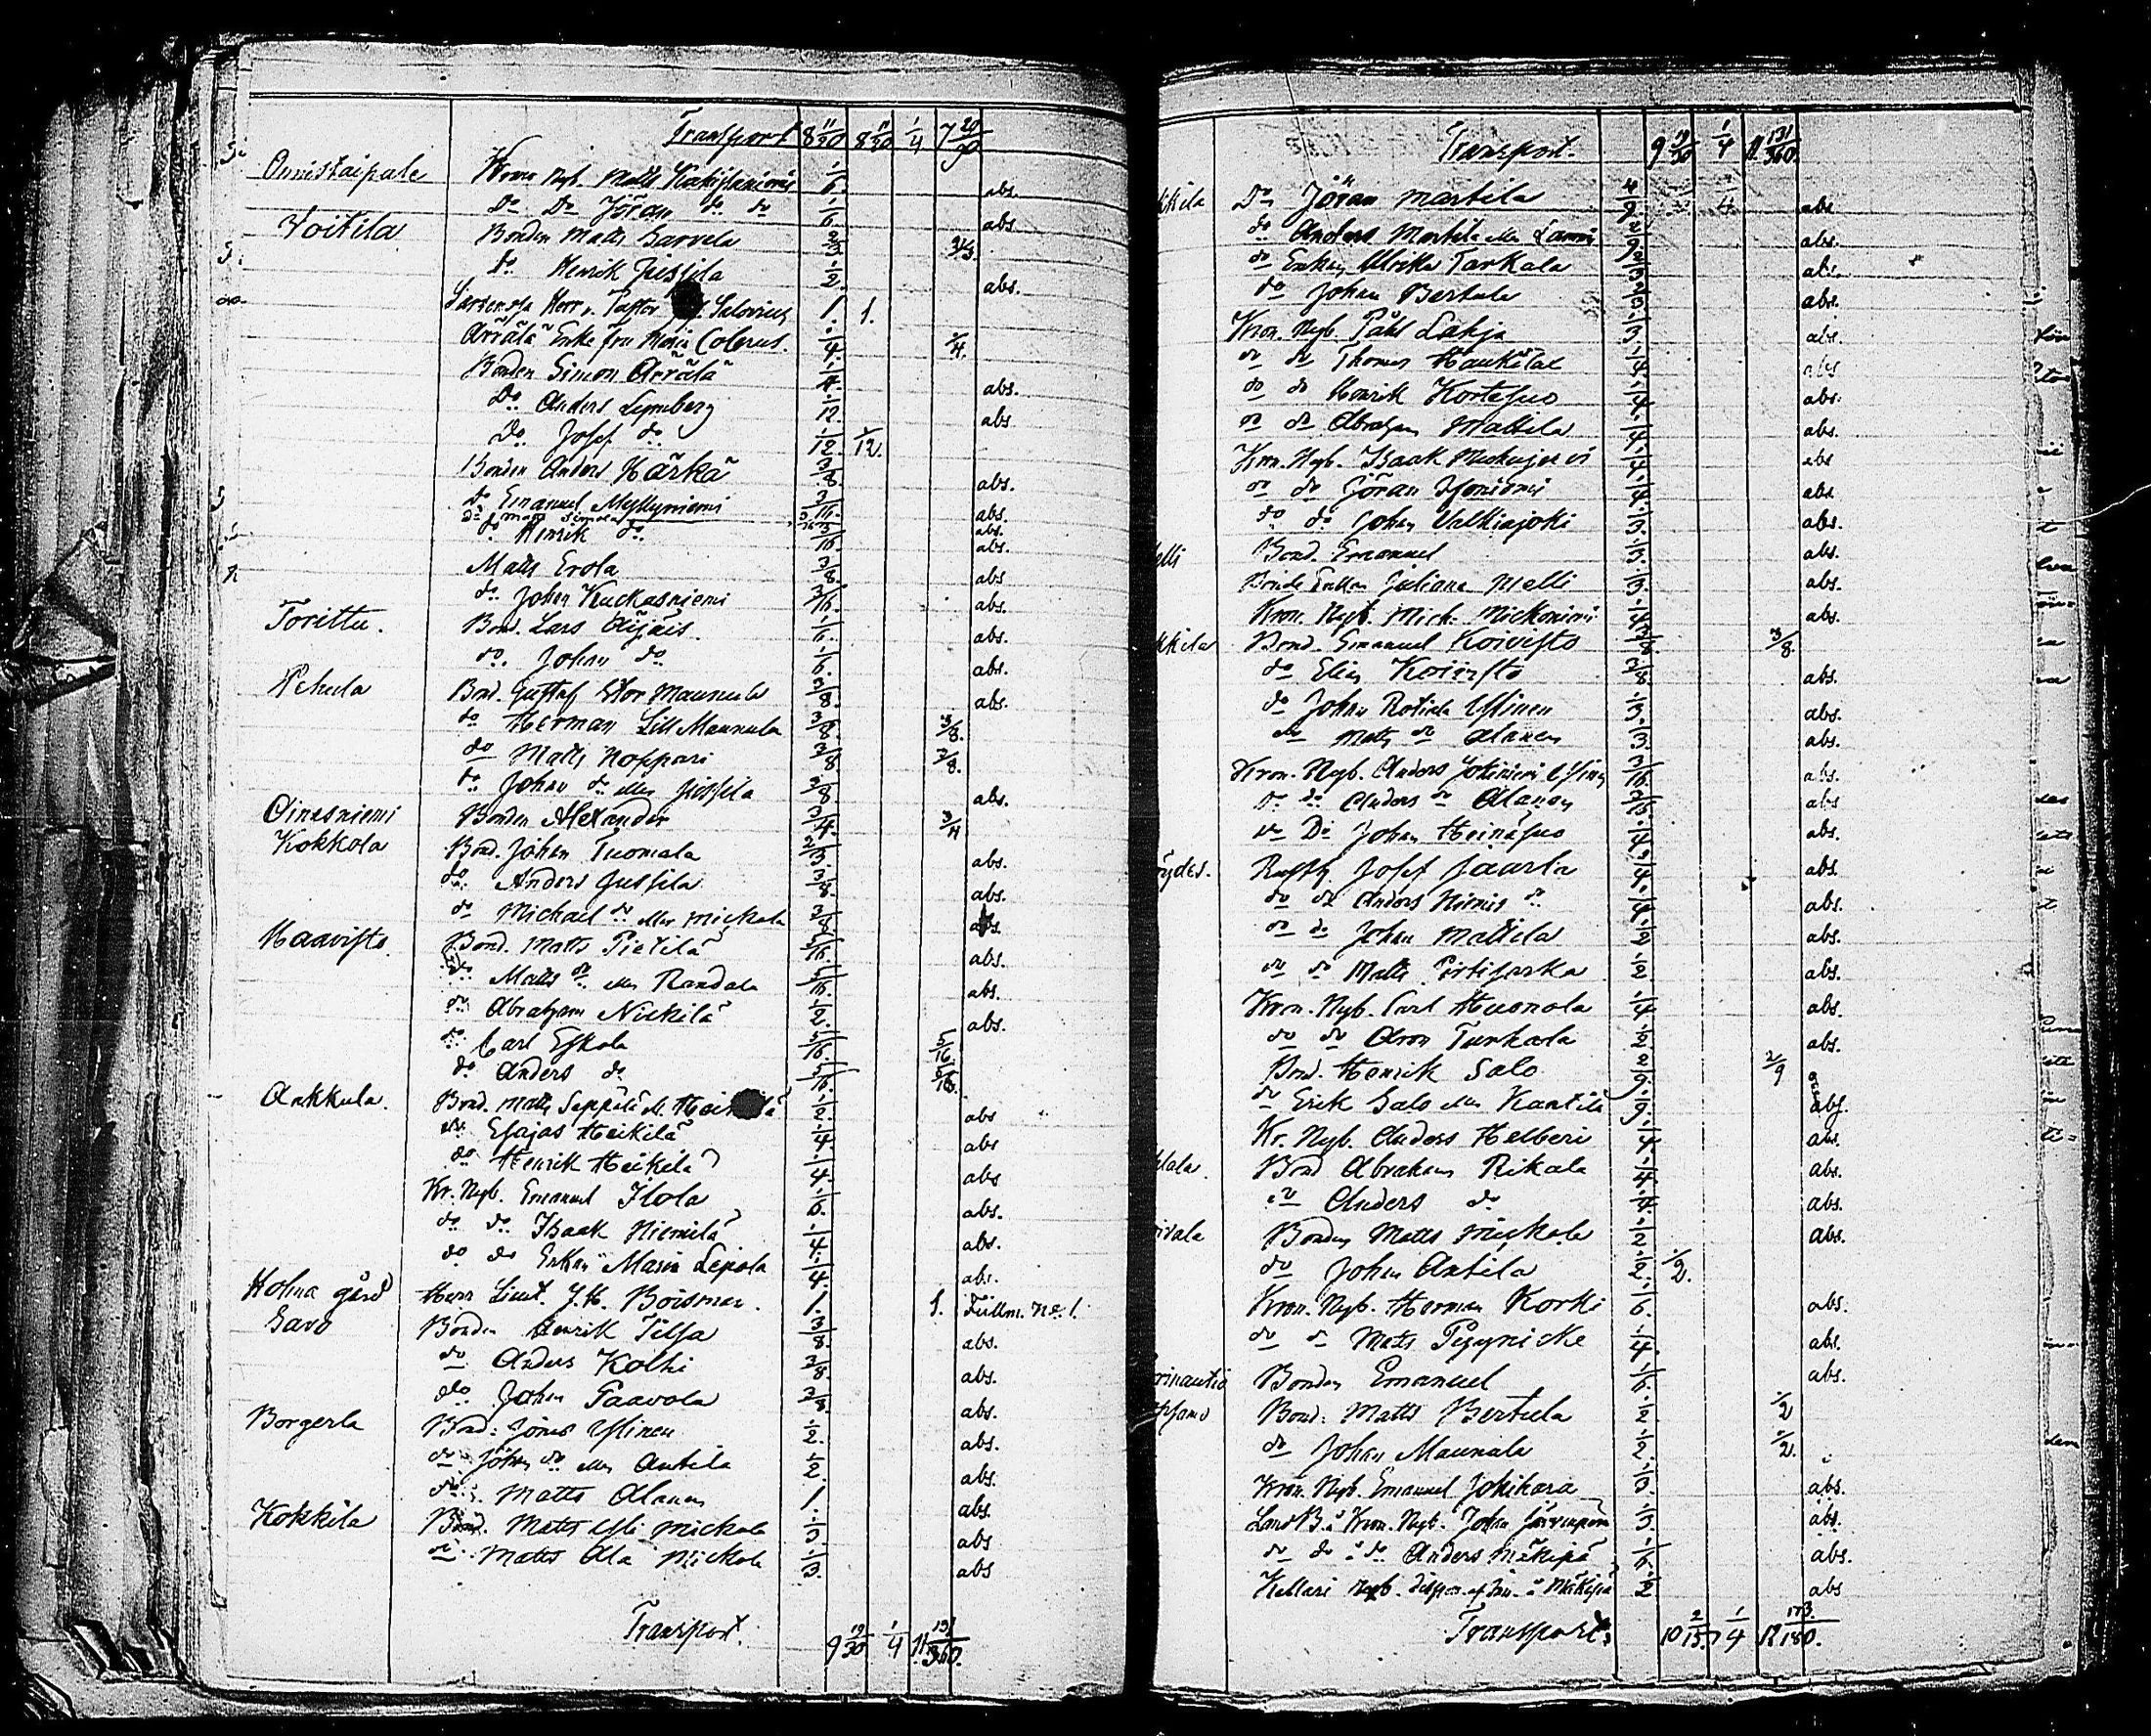 Transport 8 11/30 8 11/30 1/4 7 29/90
Onnistaipale Krono Nyb. Matts Katistaniemi 1/6. abs.
do Do Jöran do do 1/6. abs
Voitila Bonden Matts Sarvela 2/3
do Henrik Jussila 1/2. abs.
Herr v. Pastor Salovius 1. 1.
Arrälä Enke fru Maria Colerus. 1/4. 1/4.
Bonden Simon Arrälä 1/4. abs.
Do. Anders Lymberg 1/12. abs
Do. Josef do. 1/12. 1/12.
Bonden Anders Härkä 3/8. abs.
do Emanuel Myllyniemi 3/16. abs.
do Matts Simola abs.
do Henrik do. 3/16. abs.
Matts Erola 3/8. abs
do. Johan Kuckasniemi 3/16. abs.
Torittu. Bon. Lars Äijäis. 1/6. abs.
do. Johan do 1/6. abs.
Pehula Bond. Gustaf Stor Maunula 3/8. abs.
do Herman Lill Maunula 3/8. 3/8.
do Matts Noppari 3/8 3/8.
do. Johan do eller Jussila 3/8 abs.
Oinasniemi Bonden Alexander 3/4. 3/4
Kokkola Bond. Johan Tuomala 2/3. abs.
do Anders Jussila 3/8. abs.
do Michael do eller Mickola abs.
Haavisto Bond. Matts Pietilä 5/16. abs.
do. Matts do eller Randala 5/16. abs.
do Abraham Nickilä 1/2. abs.
do Carl Eskola 5/16. 5/16.
do Anders do 5/16. 5/16.
Ankkula. Bond. Matts Seppälä 1/2. abs
do Esajas Heikilä 1/4. abs
do Henrik Heikilä 1/4. abs
Kr. Nyb. Emanuel Ilola 1/6. abs.
do do. Isaak Niemilä 1/4. abs.
do do Enkan Maria Lepola 1/4. abs.
Kolna gård Herr Lieut. J. H. Boisman. 1. 1. Fullm. No 1.
Savo Bonden Henrik Tilsa 3/8. abs.
do Anders Kolhi 3/8. abs.
do Johan Paavola 3/8. abs.
Borgerla Bond: Jonas Ylinen 1/2. abs.
do Johan do eller Antila 1/2. abs.
do: Matts Alanen 1. abs.
Kokkila Bond. Matts Yli Mickola 1/3. abs
do Matts Ala Mickola 1/3. abs
Transport. 9 19/30 1/4 11 131/360.
Transport. 9 19/30 1/4 11 131/360.
kkila Do Jöran Martila 4/9. abs
do Anders Martila eller Lammi 2/9. abs.
do Enkan Ulrika Tarkala abs.
do Johan Bertula 1/3. abs.
Kron. Nyb. Påhl Lahja 1/3. abs.
do do Thomas abs
do do Henrik Kortesuo 1/4. abs.
do do Abraham Mattila 1/4. abs.
Kron. Nyb. Isaak 1/4. abs
do do Jöran 1/4. abs
do do Johan Valkiajoki 1/3. abs.
elli Bond. Emanuel 1/3. abs.
Bonde Enkan Juliana Melli 1/3. abs.
Kron. Nyb. Mich. 1/4. abs.
kkila Bond. Emanuel Koivisto 3/8. 3/8.
do Elias Koivisto 3/8. abs.
do Johan Rotiala Ylinen 1/3. abs.
do Matts do Alanen 1/3. abs.
Kron. Nyb. Anders Jokiniemi Ylinen abs.
do do Anders do Alanen abs
do Do Johan Heinäsuo 1/4. abs.
Rusth. Josef Jaarla 1/4. abs.
do do Anders Niemis do 1/4. abs.
do do Johan Mattila 1/2. abs.
do do Matts 1/2. abs.
Kron. Nyb. Carl Huonola 1/4. abs.
do do Aron Turkola 1/2. abs.
Bond. Henrik Salo 2/9. 2/9
do Erik Salo eller Kantila 1/9. abs.
Kr. Nyb. Anders Helberi 1/4. abs.
lala. Bond Abraham Rikala 1/4. abs.
do Anders do 1/4. abs.
ivala Bonden Matts Mickola 1/2. abs.
do Johan Antila 1/2. 1/2.
Kron. Nyb. Herman Korki 1/6. abs.
do do Matts Pyynicke 1/4. abs.
rinautio Bonden Emanuel 1/6. abs.
Bond: Matts Bertula 1/2. 1/2
do Johan Maunula 1/2. 1/2.
Kron. Nyb. Emanuel Jokihara abs.
Land B. å Kron. Nyb. Johan Järvenpää 1/3. abs.
do do å do Anders Mäkipä 1/6. abs.
Kellari Nyb. å Mäkipä 1/2 abs
Transport. 10 2/15. 1/4 12 173/180.